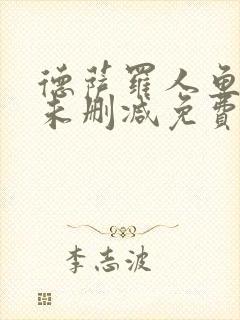 德萨羅人鱼
未删减免費
李志波